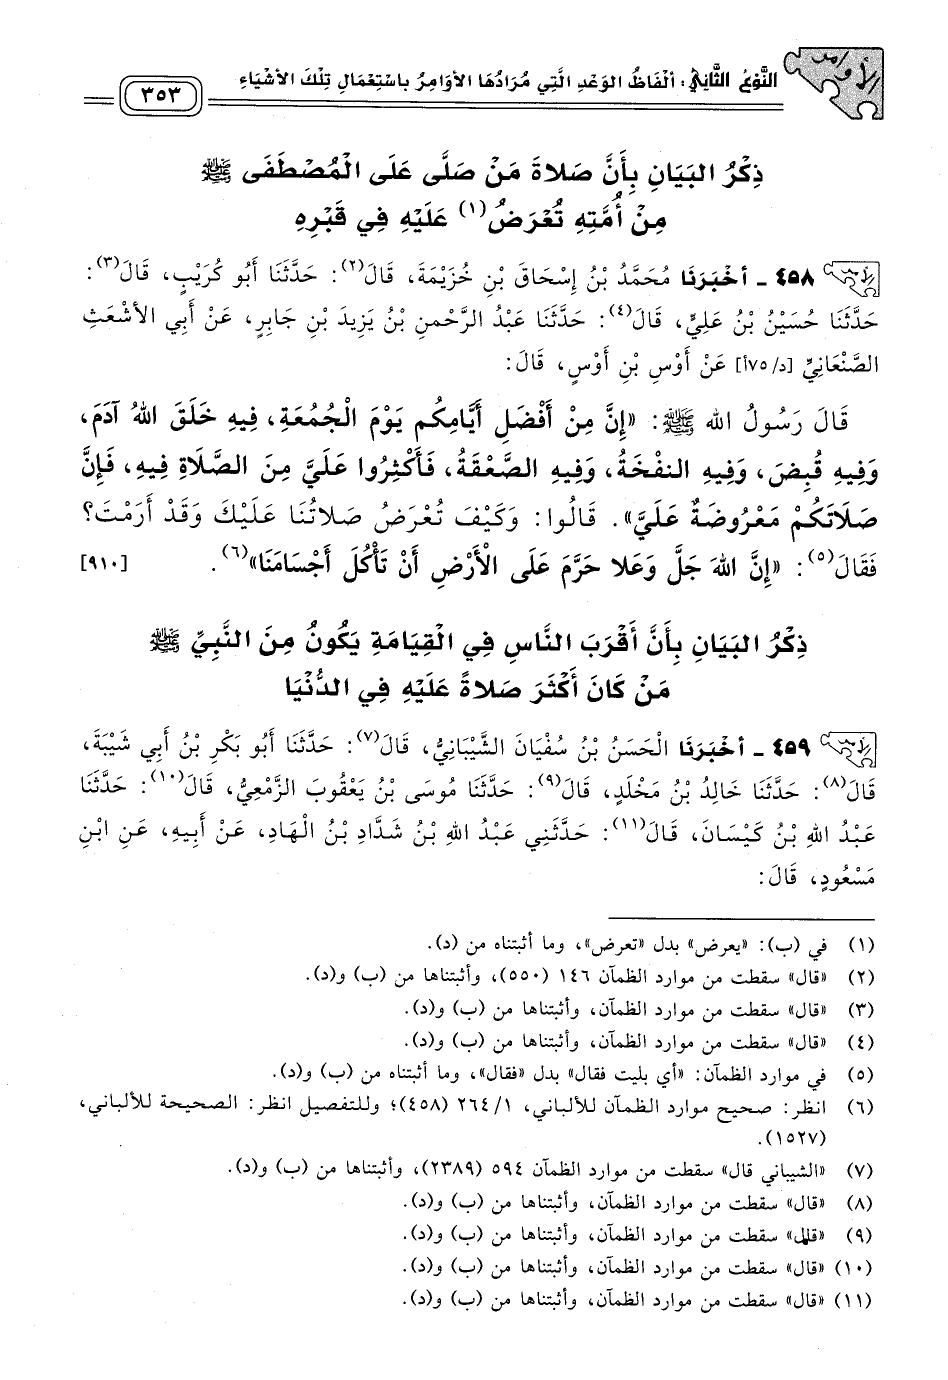 الأوامر
النَّوْعُ الثَّانِي: ألْفَاظُ الوَعْدِ الَّتِي مُرَادُهَا الأَوَامِرُ بِاسْتِعْمَالِ تِلْكَ الأَشْيَاءِ
٣٥٣
ذِكْرُ البَيَانِ بِأَنَّ صَلاةَ مَنْ صَلَّى عَلَى الْمُصْطَفَى ﷺ
مِنْ أُمَّتِهِ تُعْرَضُ(١) عَلَيْهِ فِي قَبْرِهِ
٤٥٨ ـ أَخْبَرَنَا مُحَمَّدُ بْنُ إِسْحَاقَ بْنِ خُزَيْمَةَ، قَالَ(٢): حَدَّثَنَا أَبُو كُرَيْبٍ، قَالَ(٣):
حَدَّثَنَا حُسَيْنُ بْنُ عَلِيٍّ، قَالَ(٤): حَدَّثَنَا عَبْدُ الرَّحْمنِ بْنُ يَزِيدَ بْنِ جَابِرٍ، عَنْ أَبِي الأَشْعَثِ
الصَّنْعَانِيِّ [د/٧٥أ] عَنْ أَوْسِ بْنِ أَوْسٍ، قَالَ:
قَالَ رَسُولُ اللهِ ﷺ: «إِنَّ مِنْ أَفْضَلِ أَيَّامِكُم يَوْمَ الْجُمُعَةِ، فِيهِ خَلَقَ اللهُ آدَمَ،
وَفِيهِ قُبِضَ، وَفِيهِ النفْخَةُ، وَفِيهِ الصَّعْقَةُ، فَأَكْثِرُوا عَلَيَّ مِنَ الصَّلَاةِ فِيهِ، فَإِنَّ
صَلَاتَكُمْ مَعْرُوضَةٌ عَلَيَّ». قَالُوا: وَكَيْفَ تُعْرَضُ صَلاتُنَا عَلَيْكَ وَقَدْ أَرَمْتَ؟
فَقَالَ(٥): «إِنَّ اللهَ جَلَّ وَعَلا حَرَّمَ عَلَى الْأَرْضِ أَنْ تَأْكُلَ أَجْسَامَنَا»(٦). [٩١٠]
ذِكْرُ البَيَانِ بِأَنَّ أَقْرَبَ النَّاسِ فِي القِيَامَةِ يَكُونُ مِنَ النَّبِيِّ ﷺ
مَنْ كَانَ أَكْثَرَ صَلاةً عَلَيْهِ فِي الدُّنْيَا
٤٥٩ ـ أَخْبَرَنَا الْحَسَنُ بْنُ سُفْيَانَ الشَّيْبَانِيُّ، قَالَ(٧): حَدَّثَنَا أَبُو بَكْرِ بْنُ أَبِي شَيْبَةَ،
قَالَ(٨): حَدَّثَنَا خَالِدُ بْنُ مَخْلَدٍ، قَالَ(٩): حَدَّثَنَا مُوسَى بْنُ يَعْقُوبَ الزَّمْعِيُّ، قَالَ(١٠): حَدَّثَنَا
عَبْدُ اللهِ بْنُ كَيْسَانَ، قَالَ(١١): حَدَّثَنِي عَبْدُ اللهِ بْنُ شَدَّادِ بْنُ الْهَادِ، عَنْ أَبِيهِ، عَنِ ابْنِ
مَسْعُودٍ، قَالَ:
(١) في (ب): «يعرض» بدل «تعرض»، وما أثبتناه من (د).
(٢) «قال» سقطت من موارد الظمآن ١٤٦ (٥٥٠)، وأثبتناها من (ب) و(د).
(٣) «قال» سقطت من موارد الظمآن، وأثبتناها من (ب) و(د).
(٤) «قال» سقطت من موارد الظمآن، وأثبتناها من (ب) و(د).
(٥) في موارد الظمآن: «أي بليت فقال» بدل «فقال»، وما أثبتناه من (ب) و(د).
(٦) انظر: صحيح موارد الظمآن للألباني، ١/ ٢٦٤ (٤٥٨)؛ وللتفصيل انظر: الصحيحة للألباني،
(١٥٢٧).
(٧) «الشيباني قال» سقطت من موارد الظمآن ٥٩٤ (٢٣٨٩)، وأثبتناها من (ب) و(د).
(٨) «قال» سقطت من موارد الظمآن، وأثبتناها من (ب) و(د).
(٩) «قال» سقطت من موارد الظمآن، وأثبتناها من (ب) و(د).
(١٠) «قال» سقطت من موارد الظمآن، وأثبتناها من (ب) و(د).
(١١) «قال» سقطت من موارد الظمآن، وأثبتناها من (ب) و(د).